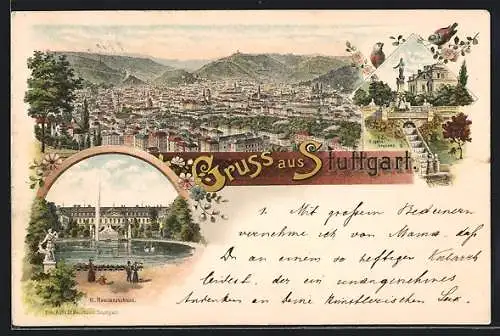 Gruss aus Stuttgart.
1. Mit großem Bedauern
vernehme ich von Mama, daß
Du an einem so heftigen Katarrh
leidest, der ein unangenehmes
Andenken an Deine künstlerischen
K. Residenzschloss.